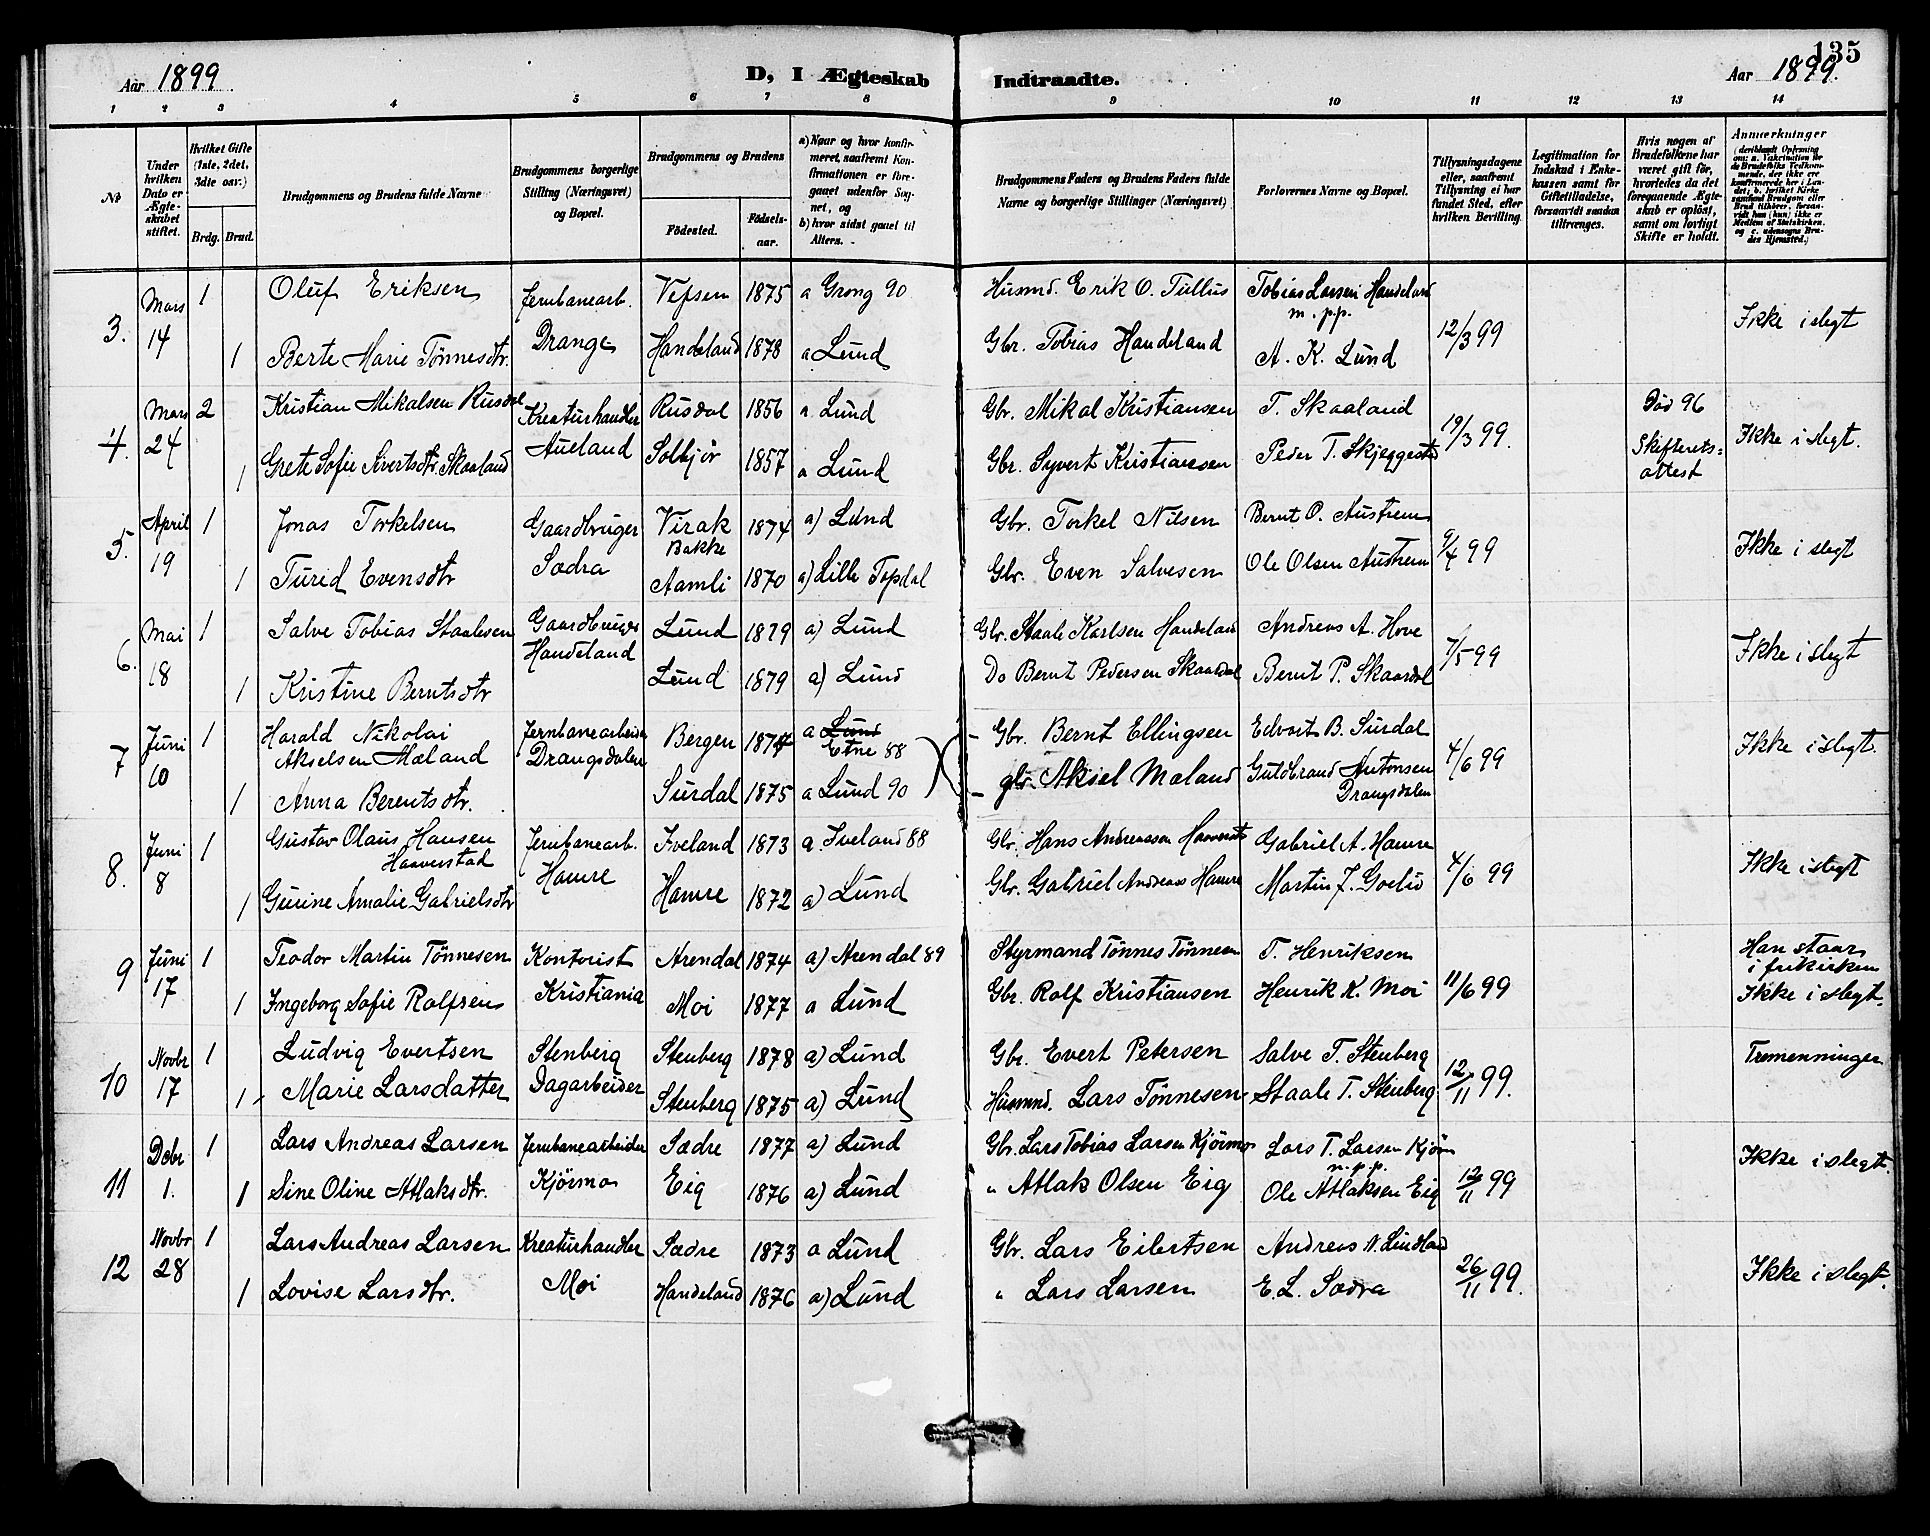 135
Aar 1899
D, I Ægteskab Indtraadte.
Aar 1899.
1 2 3 4 5 6 7 8 9 10 11 12 13 14
No
Under hvilken Dato er Ægteskabet stiftet.
Hvilket Gifte (1ste, 2det, 3die osv.)
Brdg. Brud.
Brudgommens og Brudens fulde Navne
Brudgommens borgerlige Stilling (Næringsvei) og Bopæl.
Brudgommens og Brudens
Fødested.
Fødselsaar.
a) Naar og hvor konfirmeret, saafremt Konfirmationen er foregaaet udenfor Sognet, og
b) hvor sidst gaaet til Alters.
Brudgommens Faders og Brudens Faders fulde Navne og borgerlige Stillinger (Næringsvei)
Forlovernes Navne og Bopæl.
Tillysningsdagene eller, saafremt Tillysning ei har fundet Sted, efter hvilken Bevilling.
Legitimation for Indskud i Enkekassen samt for Giftetilladelse, forsaavidt saadan tiltrænges.
Hvis nogen af Brudefolkene har været gift før, hvorledes da det foregaaende Ægteskab er opløst, samt om lovligt Skifte er holdt.
Anmærkninger
3. Mars 14 1 Oluf Eriksen Jernbanearb. Drange Vefsen 1875 a Grong 90 Husmd. Erik O. Tullus Tobias Larsen Handeland m. p.p. 12/3 99 Ikke i slegt
1 Berte Marie Tönnesdtr. Handeland 1878 a Lund Gbr. Tobias Handeland A. K. Lund
4. Mars 24 2 Kristian Mikalsen Rusdal Kreaturhandler Aueland Rusdal 1856 a. Lund Gbr. Mikal Kristiansen T. Skaaland 19/3 99. Död 96 Skifteretsattest Ikke i slegt.
1 Grete Sofie Sivertsdtr Skaaland Solbjör 1857 a Lund Gbr. Syvert Kristiansen Peder T. Skjeggestad
5. April 19 1 Jonas Torkelsen Gaardbruger Sædra Virak Bakke 1874 a) Lund Gbr. Torkel Nilsen Bernt O. Austrem 9/4 99 Ikke i slegt
1 Turid Evensdtr Aamli 1870 a) Lille Topdal Gbr. Even Salvesen Ole Olsen Austrem
6. Mai 18 1 Salve Tobias Staalesen Gaardbruger Handeland Lund 1879 a) Lund Gbr. Staale Karlsen Handeland Andreas A. Hove 7/5 99 Ikke i slegt
1 Kristine Berntsdtr Lund 1879 a) Lund Do Bernt Pedersen Skaardal Bernt P. Skaardal
7 Juni 10 1 Harald Nikolai Akselsen Mæland Jernbanearbeider Drangsdalen Bergen 1874 a Lund Etne 88 Gbr. Bernt Ellingsen Edvart B. Surdal 4/6 99 Ikke i slegt.
1 Anna Berentsdtr. Surdal 1875 a Lund 90 gbr. Aksel Mæland Guldbrand Antonsen Drangsdalen
8. Juni 8 1 Gustav Olaus Hansen Haaverstad Jernbanearb. Hamre Iveland 1873 a. Iveland 88 Gbr. Hans Andreassen Haaverstad Gabriel A. Hamre 4/6 99 Ikke i slegt
1 Gurine Amalie Gabrielsdtr Hamre 1872 a) Lund Gbr. Gabriel Andreas Hamre Martin J.
9 Juni 17 1 Teodor Martin Tönnesen Kontorist Kristiania Arendal 1874 a) Arendal 89 Styrmand Tönnes Tönnesen T. Henriksen 11/6 99 Han staar i frikirken Ikke i slegt.
1 Ingeborg Sofie Rolfsen Moi 1877 a Lund Gbr. Rolf Kristiansen Henrik K. Moi
10 Novbr 17 1 Ludvig Evertsen Stenberg Dagarbeider Stenberg 1878 a) Lund Gbr. Evert Petersen Salve T. Stenberg 12/11 99. Tremenninger
1 Marie Larsdatter Stenberg 1875 a) Lund Husmnd. Lars Tönnesen Staale T. Stenberg
11 Debr 1. 1 Lars Andreas Larsen Jernbanearbeider Kjörmo Sædre 1877 a) Lund Gbr. Lars Tobias Larsen Kjörmo Lars T. Larsen Kjörm m.p.p. 12/11 99 Ikke i slegt.
1 Sine Oline Atlaksdtr. Eig 1876 a) Lund " Atlak Olsen Eig Ole Atlaksen Eig
12 Novbr 28 1 Lars Andreas Larsen Kreaturhandler Moi Sædre 1873 a Lund Gbr. Lars Eilertsen Andreas N. Lindland 26/11 99. Ikke i slegt.
1 Lovise Larsdtr. Handeland 1876 a) Lund " Lars Larsen E. L. Sædra